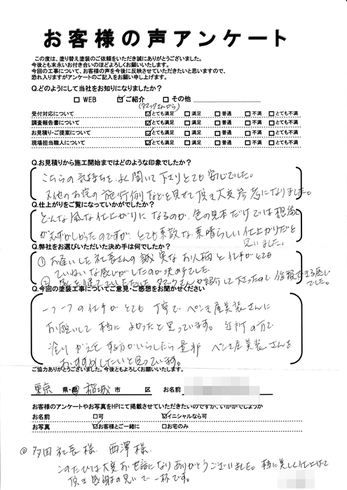 お客様の声アンケート
この度は、塗り替え塗装のご依頼をいただき誠にありがとうございました。
今後とも末永いお付き合いのほどよろしくお願いいたします。
今回の工事について、お客様の声を今後に反映させていただきたいと思いますので、
恐れ入りますがアンケートのご記入をお願い申し上げます。
Q.どのようにして当社をお知りになりましたか?
□WEB ☑ご紹介 □その他
受付対応について ☑とても満足 □満足 □普通 □不満 □とても不満
調査報告書について ☑とても満足 □満足 □普通 □不満 □とても不満
お見積り・ご提案について ☑とても満足 □満足 □普通 □不満 □とても不満
現場担当職人について ☑とても満足 □満足 □普通 □不満 □とても不満
Q.お見積りから施工開始まではどのような印象でしたか?
こちらの気持ちを良く聞いて下さりとても安心でした。
又他のお宅の施行例などを見せて頂き大変参考になりました。
Q.仕上がりをご覧になっていかがでしたか?
どんな風な仕上がりになるのか、色の見本だけでは想像
がむずかしかったのですが、とても素敵な素晴らしい仕上がりだと
思いました。
Q.弊社をお選びいただいた決め手は何でしたか?
①お会いした社長さんの誠実なお人柄と仕事がとても
ていねいな感じがしたので決めました。
Q.今回の塗装工事についてご意見・ご感想をお聞かせください
一つ一つの仕事がとても丁寧で、ペンキ屋美装さんに
お願いして本当に良かったと思っています。近所の方で
塗りかえをする方がいらしたら是非ペンキ屋美装さんを
おすすめしたいと思っています。
ご協力ありがとうございました。今後ともよろしくお願いいたします。
東京 県・都 稲城 市 区 お名前
お客様のアンケートやお写真をHPにて掲載させていただきたいのですが、いかがでしょうか
お名前 □可 ☑イニシャルなら可
お写真 ☑お客様とご一緒に □お宅のみ
このたびは大変お世話になりありがとうございました。